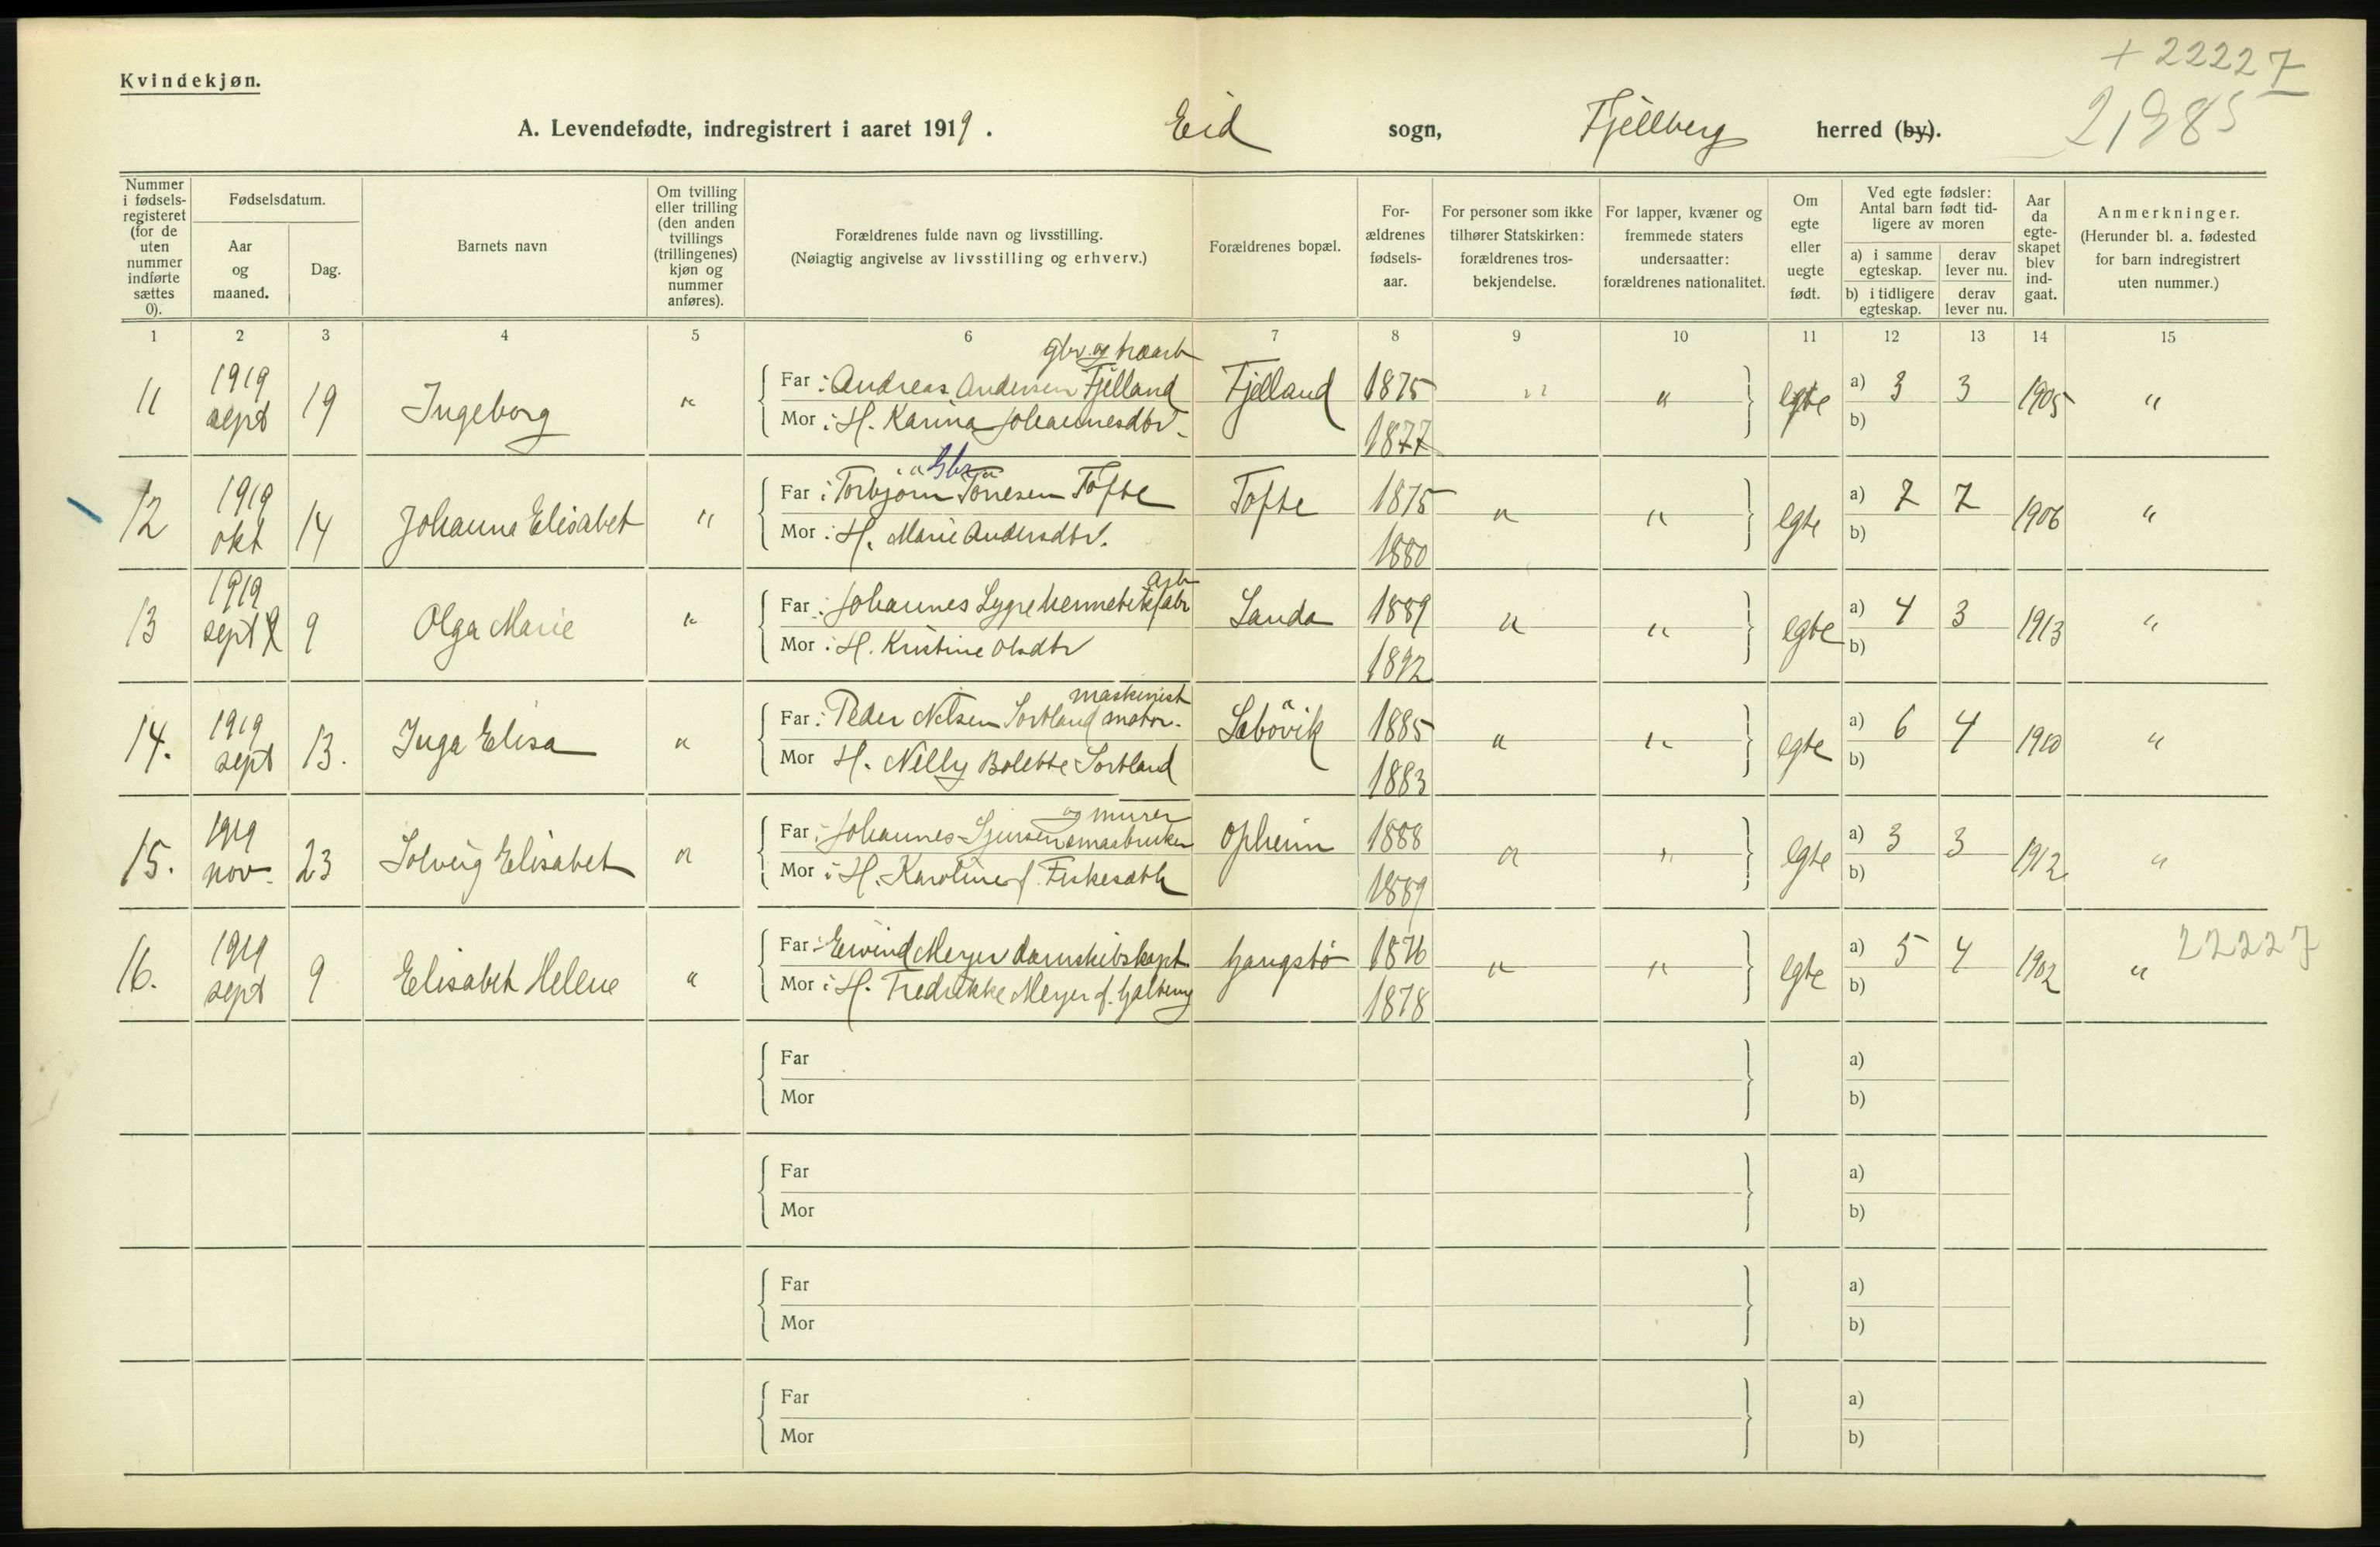 Kvindekjøn.
+ 22227
21985
A. Levendefødte, indregistrert i aaret 1919. Eid sogn, Fjellberg herred (by).
Nummer i fødsels-registeret (for de uten nummer indførte sættes 0).
Fødselsdatum.
Aar og maaned.
Dag.
Barnets navn
Om tvilling eller trilling (den anden tvillings (trillingenes) kjøn og nummer anføres).
Forældrenes fulde navn og livsstilling.
(Nøiagtig angivelse av livsstilling og erhverv.)
Forældrenes bopæl.
For-ældrenes fødsels-aar.
For personer som ikke tilhører Statskirken: forældrenes tros-bekjendelse.
For lapper, kvæner og fremmede staters undersaatter: forældrenes nationalitet.
Om egte eller uegte født.
Ved egte fødsler: Antal barn født tid-ligere av moren
a) i samme egteskap.
derav lever nu.
b) i tidligere egteskap.
derav lever nu.
Aar da egte-skapet blev ind-gaat.
Anmerkninger.
(Herunder bl. a. fødested for barn indregistrert uten nummer.)
1 2 3 4 5 6 7 8 9 10 11 12 13 14 15
gbr. og træarb
11 1919 sept 19 Ingeborg " Far: Andreas Andersen Fjelland Fjelland 1875 " " egte a) 3 3 1905 "
Mor: H. Karina Johannesdtr. 1877 b)
" Gbr "
12 1919 okt 14 Johanna Elisabet " Far: Torbjörn Tørresen Tofte Tofte 1875 " " egte a) 7 7 1906 "
Mor: H. Marie Andersdtr. 1880 b)
arb
13 1919 sept 9 Olga Marie " Far: Johannes Lygre hermetikfabr Sanda 1889 " " egte a) 4 3 1913 "
Mor: H. Kristine Olsdtr 1892 b)
maskinist
14. 1919 sept 13. Inga Elisa " Far: Peder Nelsen Sortland motor. Sæbövik 1885 " " egte a) 6 4 1910 "
Mor H. Nelly Bolette Sortland 1883 b)
og murer
15. 1919 nov. 23 Solveig Elisabet " Far: Johannes Sjursen smaabruker Opheim 1888 " " egte a) 3 3 1912 "
Mor: H. Karoline f. Fiskesæth 1889 b)
22227
16. 1919 sept 9 Elisabet Helene " Far: Eivind Meyer damskibskapt Gangstö 1876 " " egte a) 5 4 1902 "
Mor: H. Fredrikke Meyer f. Galtung 1878 b)
Far a)
Mor b)
Far a)
Mor b)
Far a)
Mor b)
Far a)
Mor b)